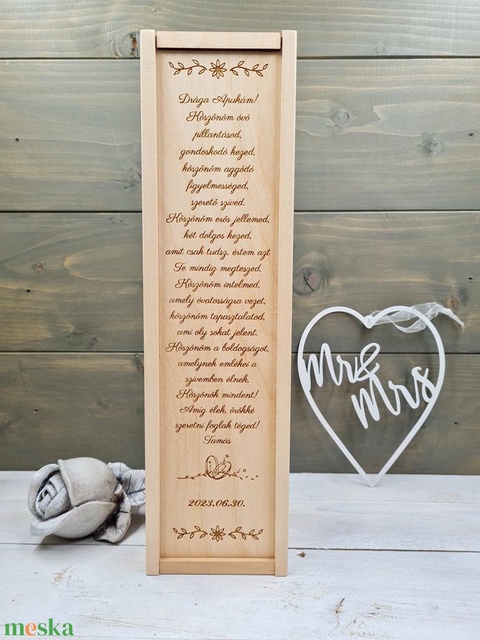 Drága Apukám!
Köszönöm óvó
pillantásod,
gondoskodó kezed,
köszönöm aggódó
figyelmességed,
szerető szíved.
Köszönöm erős jellemed,
két dolgos kezed,
amit csak tudsz, értem azt
Te mindig megteszed.
Köszönöm intelmed,
amely óvatosságra vezet,
köszönöm tapasztalatod,
ami oly sokat jelent.
Köszönöm a boldogságot,
amelynek emlékei a
szívemben élnek.
Köszönök mindent!
Amíg élek, örökké
szeretni foglak téged!
Tamás
2023.06.30.
Mr &
Mrs
meska